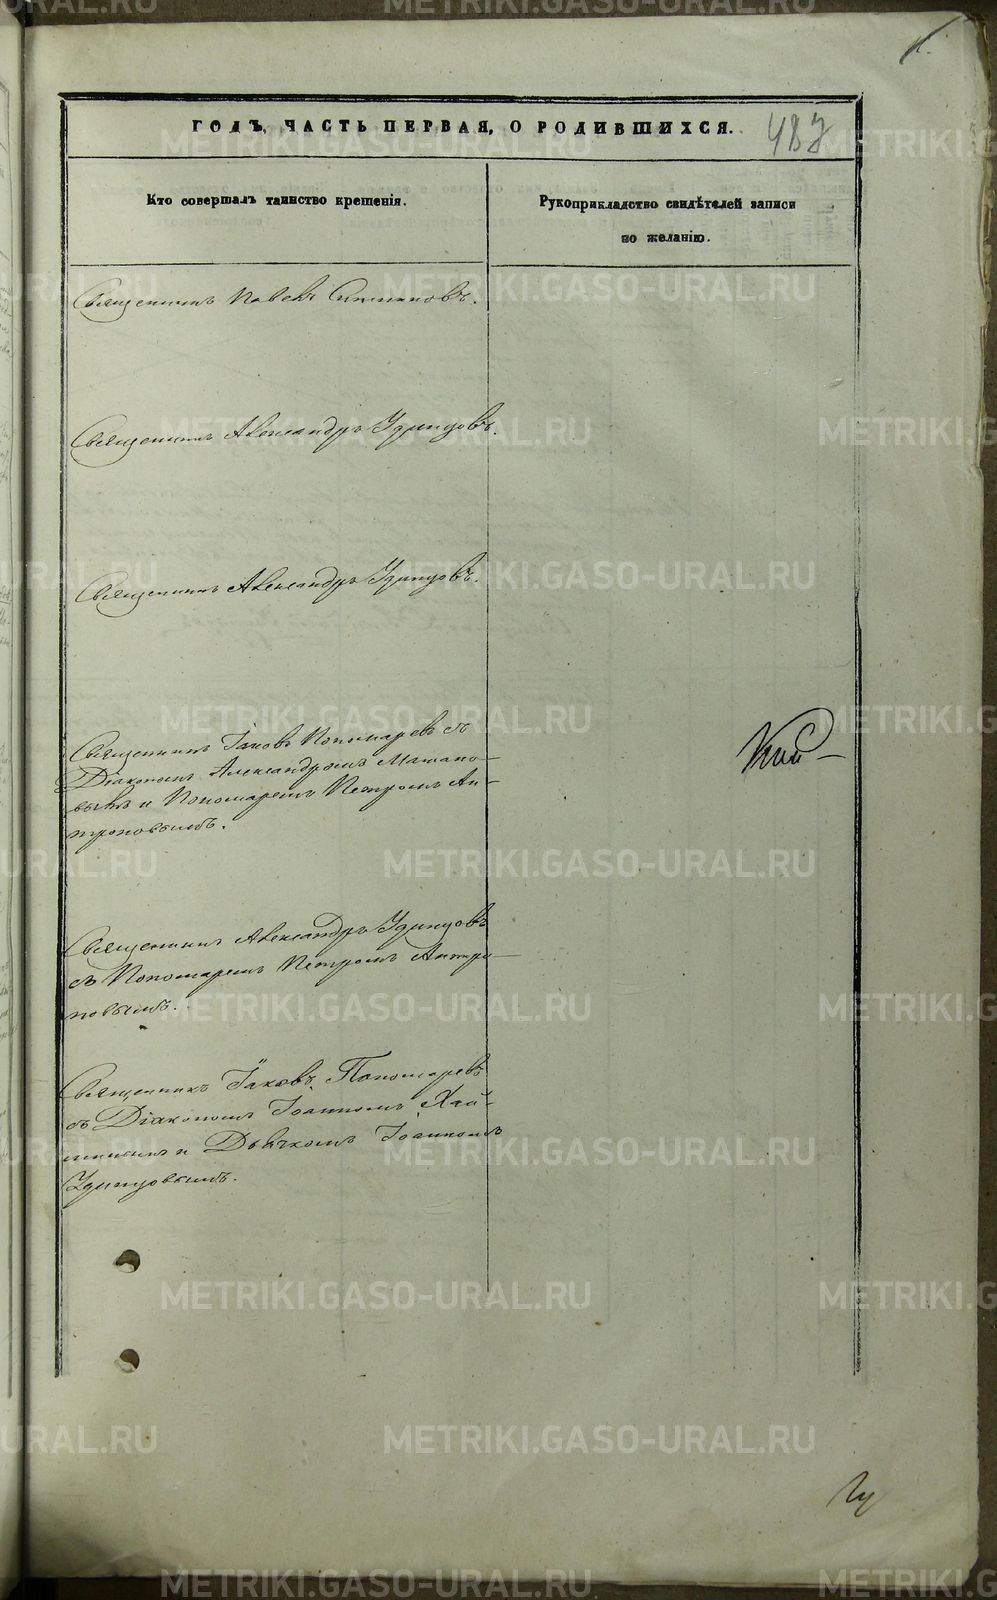 ГОДЪ, ЧАСТЬ ПЕРВАЯ, О РОДИВШИХСЯ. 487
Кто совершалъ таинство крещенія.
Рукоприкладство свидѣтелей записи
по желанію.
Священникъ Павелъ
Священникъ Александръ Удинцовъ.
Священникъ Александръ Удинцовъ.
Священникъ Іаковъ Пономаревъ съ
Діакономъ Александромъ
и Пономаремъ Петромъ Ан-
троповымъ.
Священникъ Александръ Удинцовъ
съ Пономаремъ Петромъ Антро-
повымъ.
Священникъ Іаковъ Пономаревъ
съ Діакономъ Іоанномъ
и Дьячкомъ Іоанномъ
Удинцовымъ.
METRIKI.GASO-URAL.RU